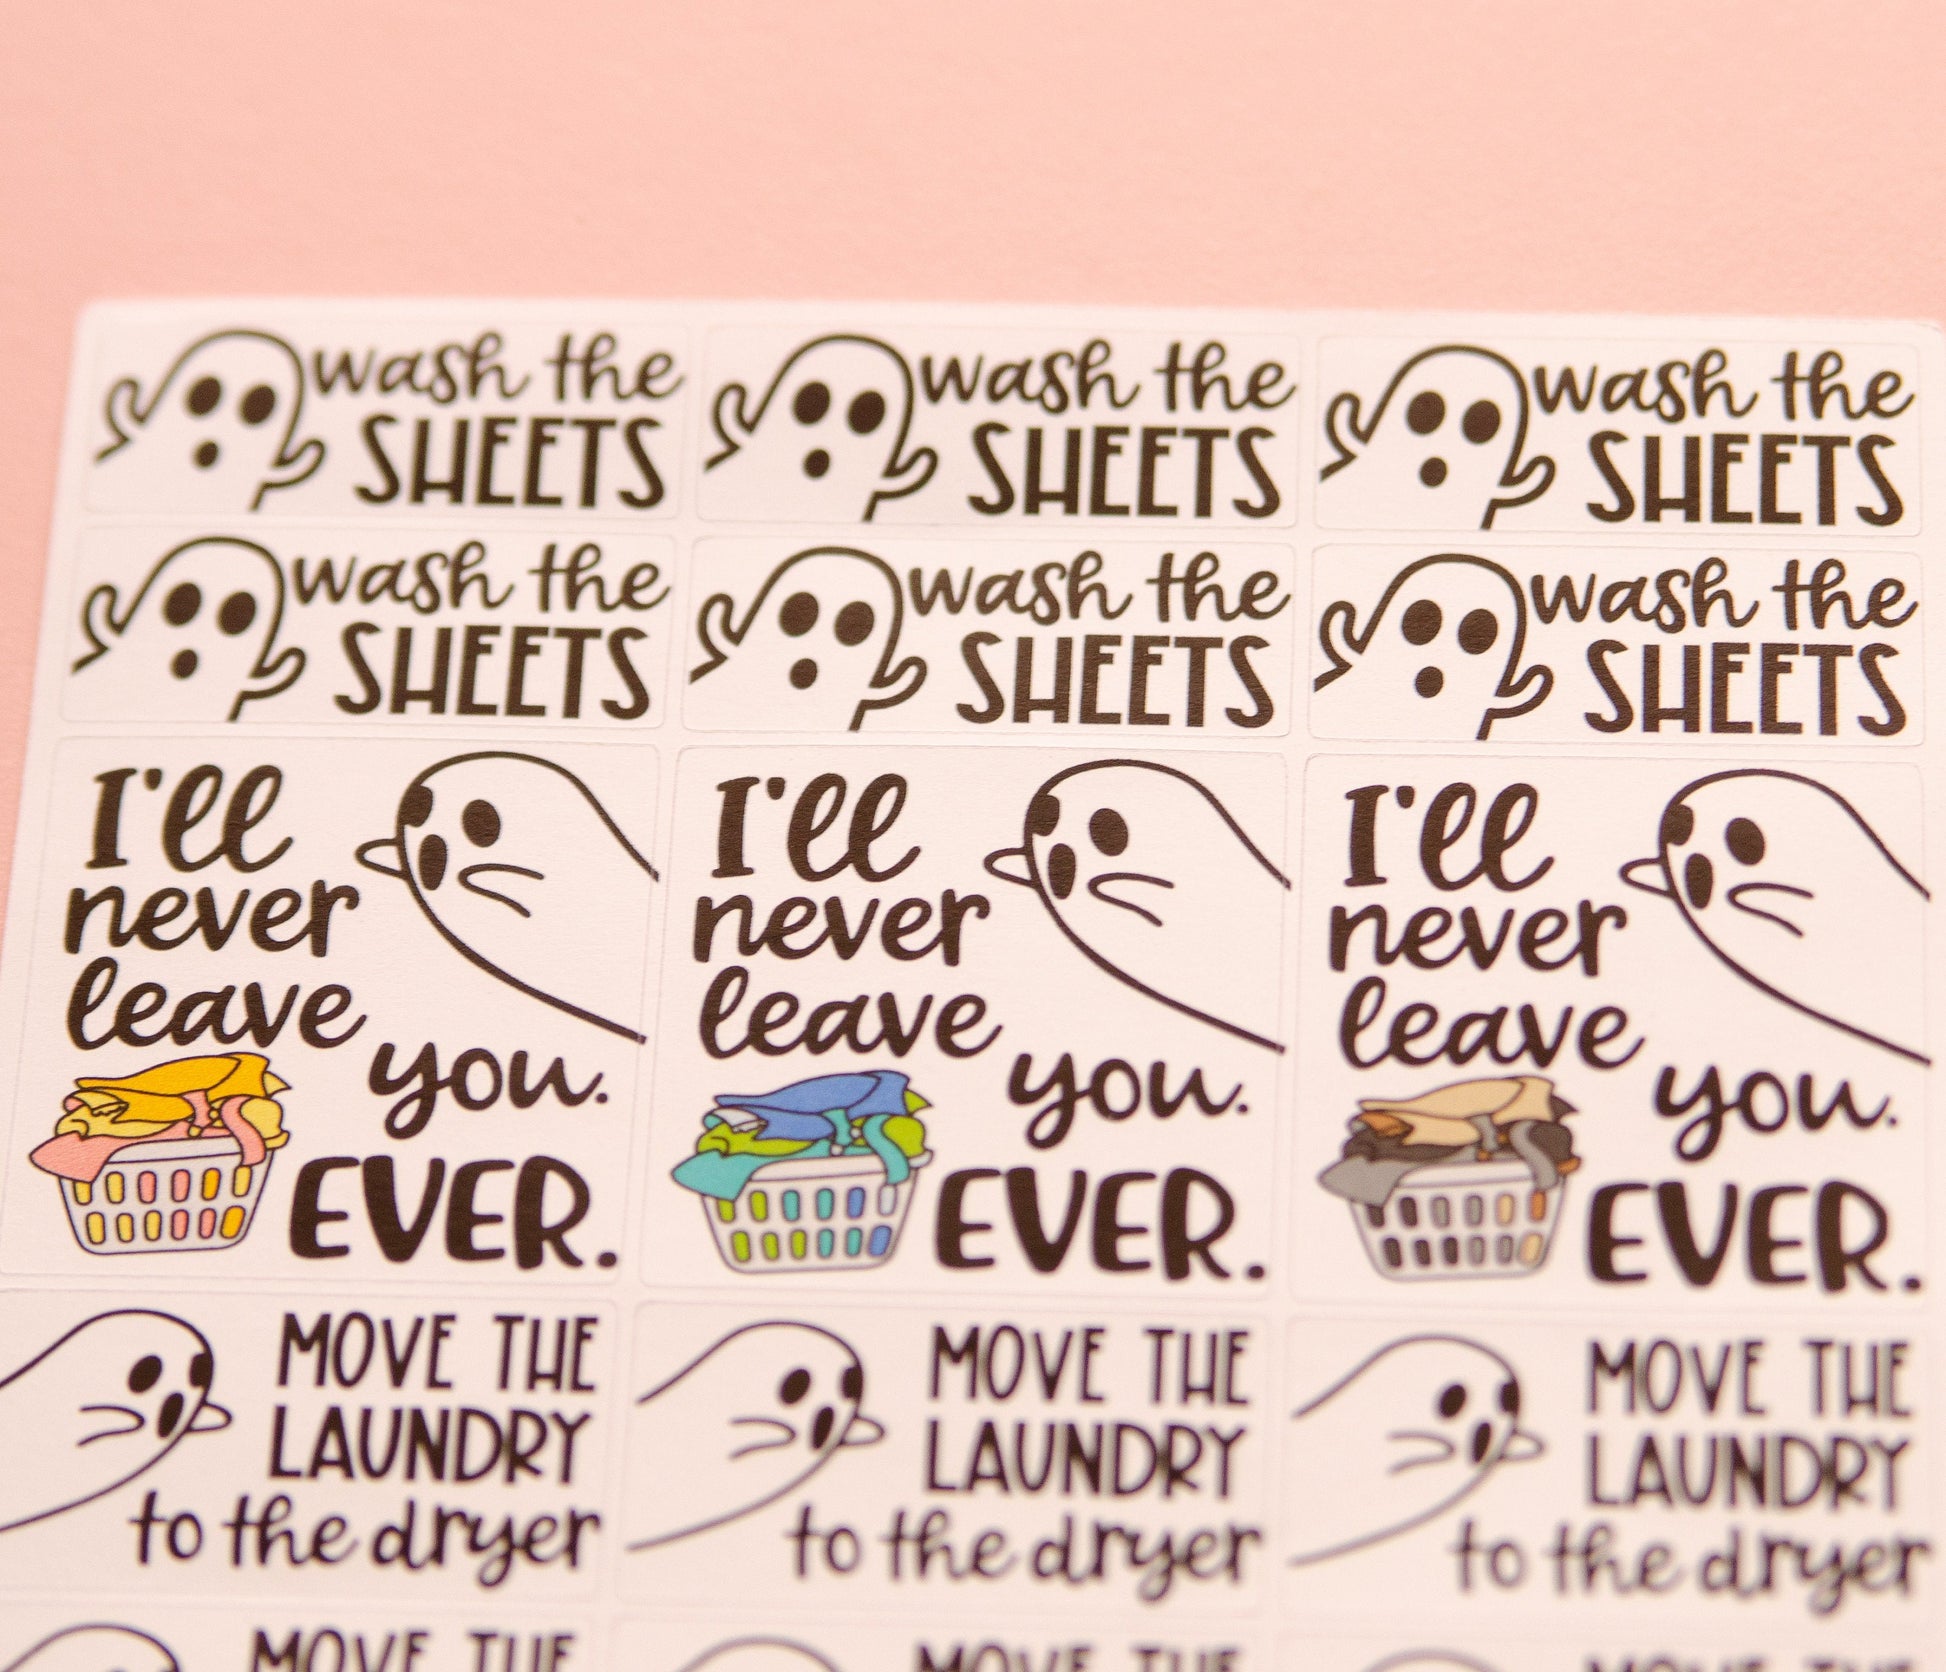 wash the wash the wash the
SHEETS SHEETS SHEETS
wash the wash the wash the
SHEETS SHEETS SHEETS
I'll I'll I'll
never never never
leave leave leave
you. you. you.
EVER. EVER. EVER.
MOVE THE MOVE THE MOVE THE
LAUNDRY LAUNDRY LAUNDRY
to the dryer to the dryer to the dryer
MOVE THE MOVE THE MOVE THE